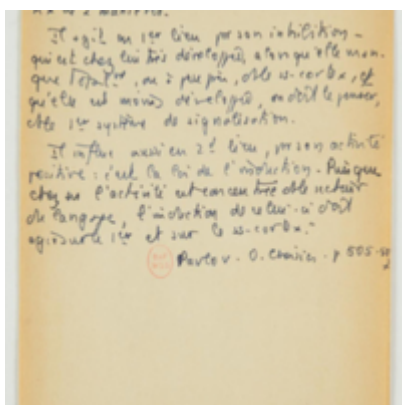 Il agit en 1er lieu par son inhibition -
qui est chez lui très développée, alors qu'elle man-
que totalt, ou à peu près, ds le ss-cortex, et
qu'elle est moins développée, on doit le penser,
ds le 1er système de signalisation.
Il influe aussi en 2d lieu, par son activité
positive : c'est la loi de l'induction - Puisque
chez l'activité est concentrée ds le secteur
du langage, l'induction de celui-ci doit
agir sur le 1er et sur le ss-cortex."
Pavlov - O. Choisies - p 505-